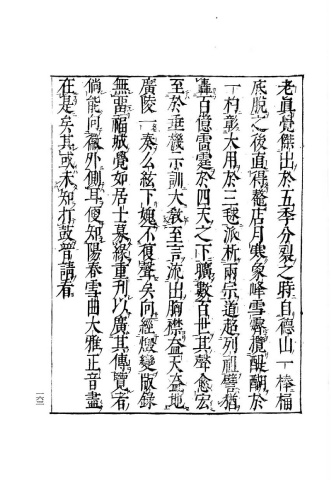 老眞覺傑出於五季分裂之時自德山一棒桶
底脫之後直得鼇店月寒象峰雪霽攪醍醐於
一杓彰大用於三毬派析兩宗道超列祖譬猶
轟百億雷霆於四天之下曠數百世其聲愈宏
至於垂機示訓大敎至言流出胸襟益天益地
廣陵一奏么絃下媿不復聲矣向經燈變版錄
無畱福城覺如居士募緣重刊以廣其傳覽者
倘能向徽外側耳便知陽春雪曲大雅正音盡
在是矣其或未知打鼓普請看
六三